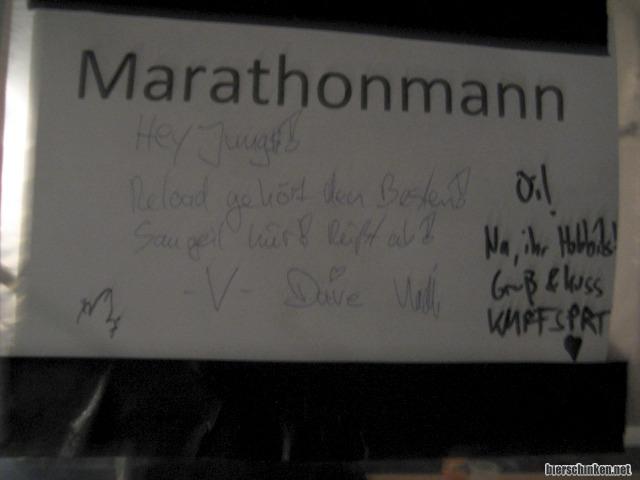 Marathonmann
Hey Jungs!
Reload gehört den Besten!
Saugeil hier! Reißt ab!
-V- Dave
Oi!
Na, ihr Hobbits!
Gruß & Kuss
KMPFSPRT
bierschinken.net